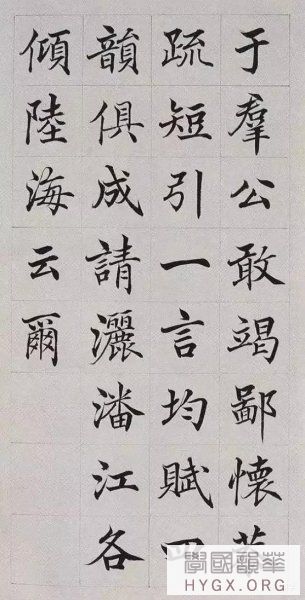 于羣公敢竭鄙懷恭
疏短引一言均賦四
韻俱成請灑潘江各
傾陸海云爾
學國韻華
HYGX.ORG